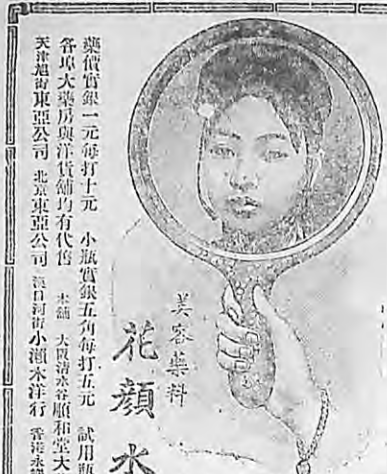 美容藥料
花顏水
藥價實銀一元每打十元 小瓶實銀五角每打五元 試用瓶
各埠大藥房與洋貨舖均有代售 本舖 大阪清水谷順和堂大
天津旭街東亞公司 北京東亞公司 漢口河街小濵水洋行 香港永